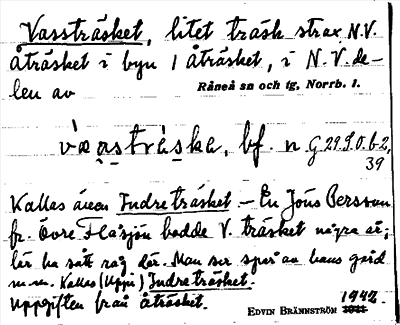 Vassträsket, litet träsk strax N.V.
åträsket i byn 1 åträsket, i N.V. de-
len av Råneå sn och tg, Norrb. l.
vàsstràska, bf. n G 29 9.0.6-2,
39
Kallas även Indreträsket — En Jöns Persson
fr. Övre Flåsjön bodde V. träsket några år,
lär ha sått råg där. Man ser spår av hans gård
m.m. Kallas (Uppi) Indreträsket.
Uppgiften från åträsket.
EDVIN BRÄNNSTRÖM 1942.